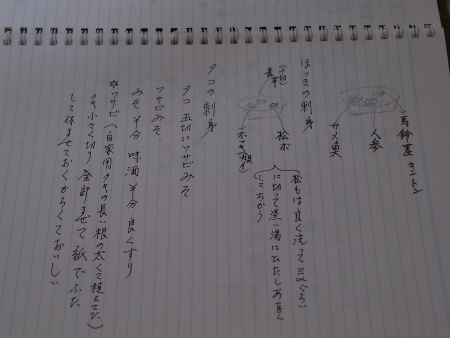 馬鈴薯 キントン
人参
サメ臭
ほっきの刺身
長芋
(千切)
松ボ
ホッキ
松もは良く洗って三cmぐらい
に切って熱い湯にひたし
タコの刺身
タコ 五切にワサビみそ
ワサビみそ
みそ 半分 味酒 半分 良くすり
ワサビ(自家用クキの長い根の太くて植えてた)
クキ小さく切り 全部まぜて 紙でふた
して休ませておくからくておいしい